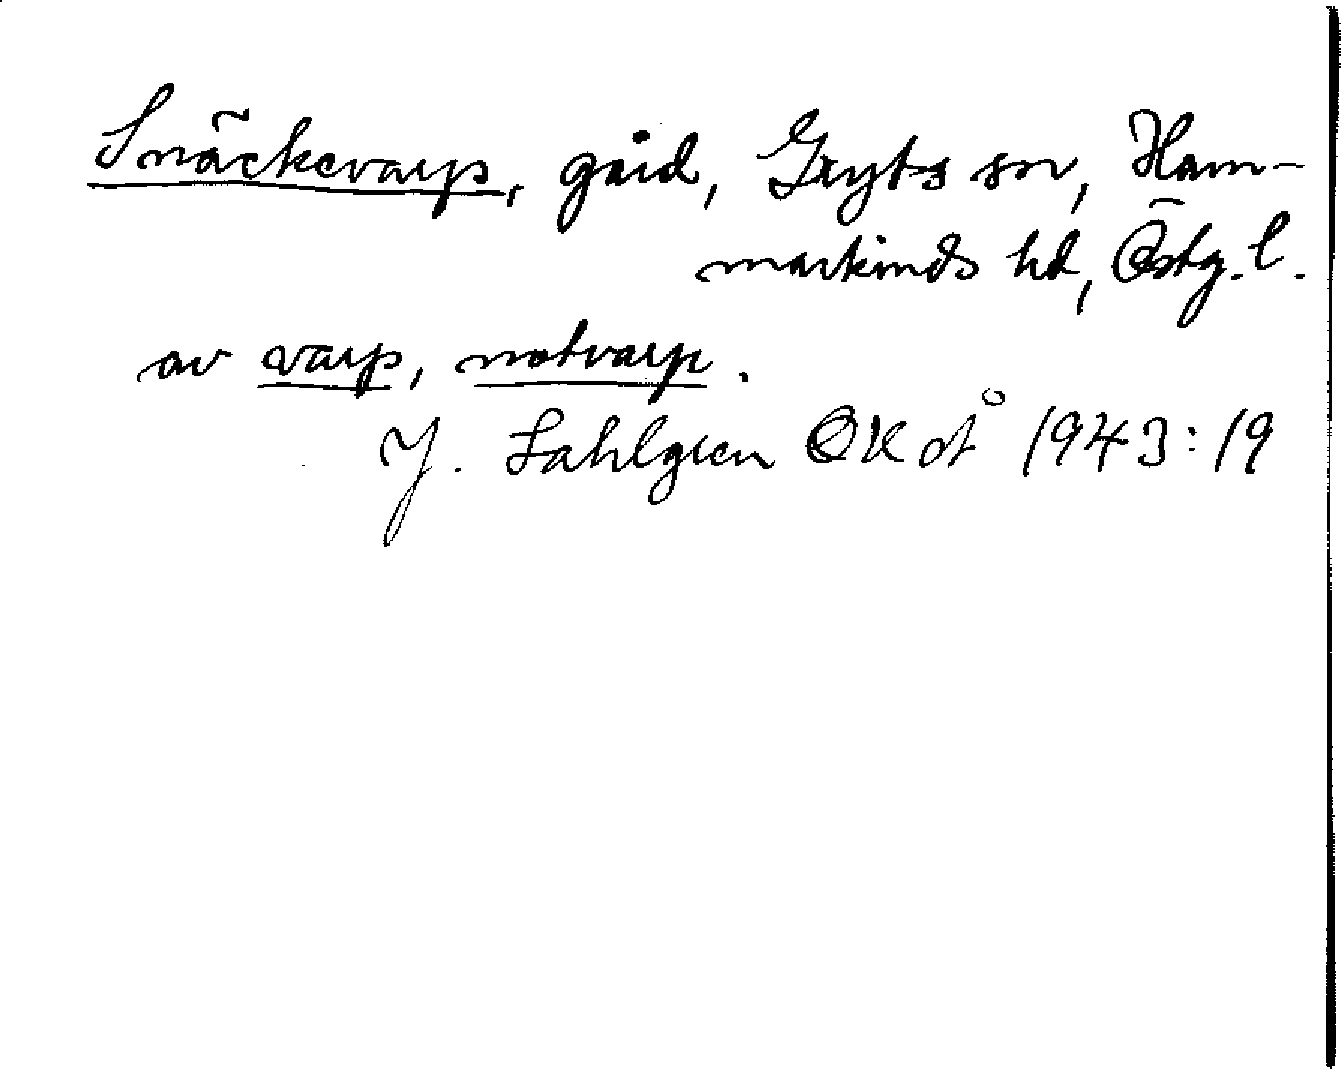 Snäckevarp, gård, Gryts sn, Ham-
markinds hd, Östg. l.
av varp, notvarp.
J. Sahlgren ÖK då 1943:19